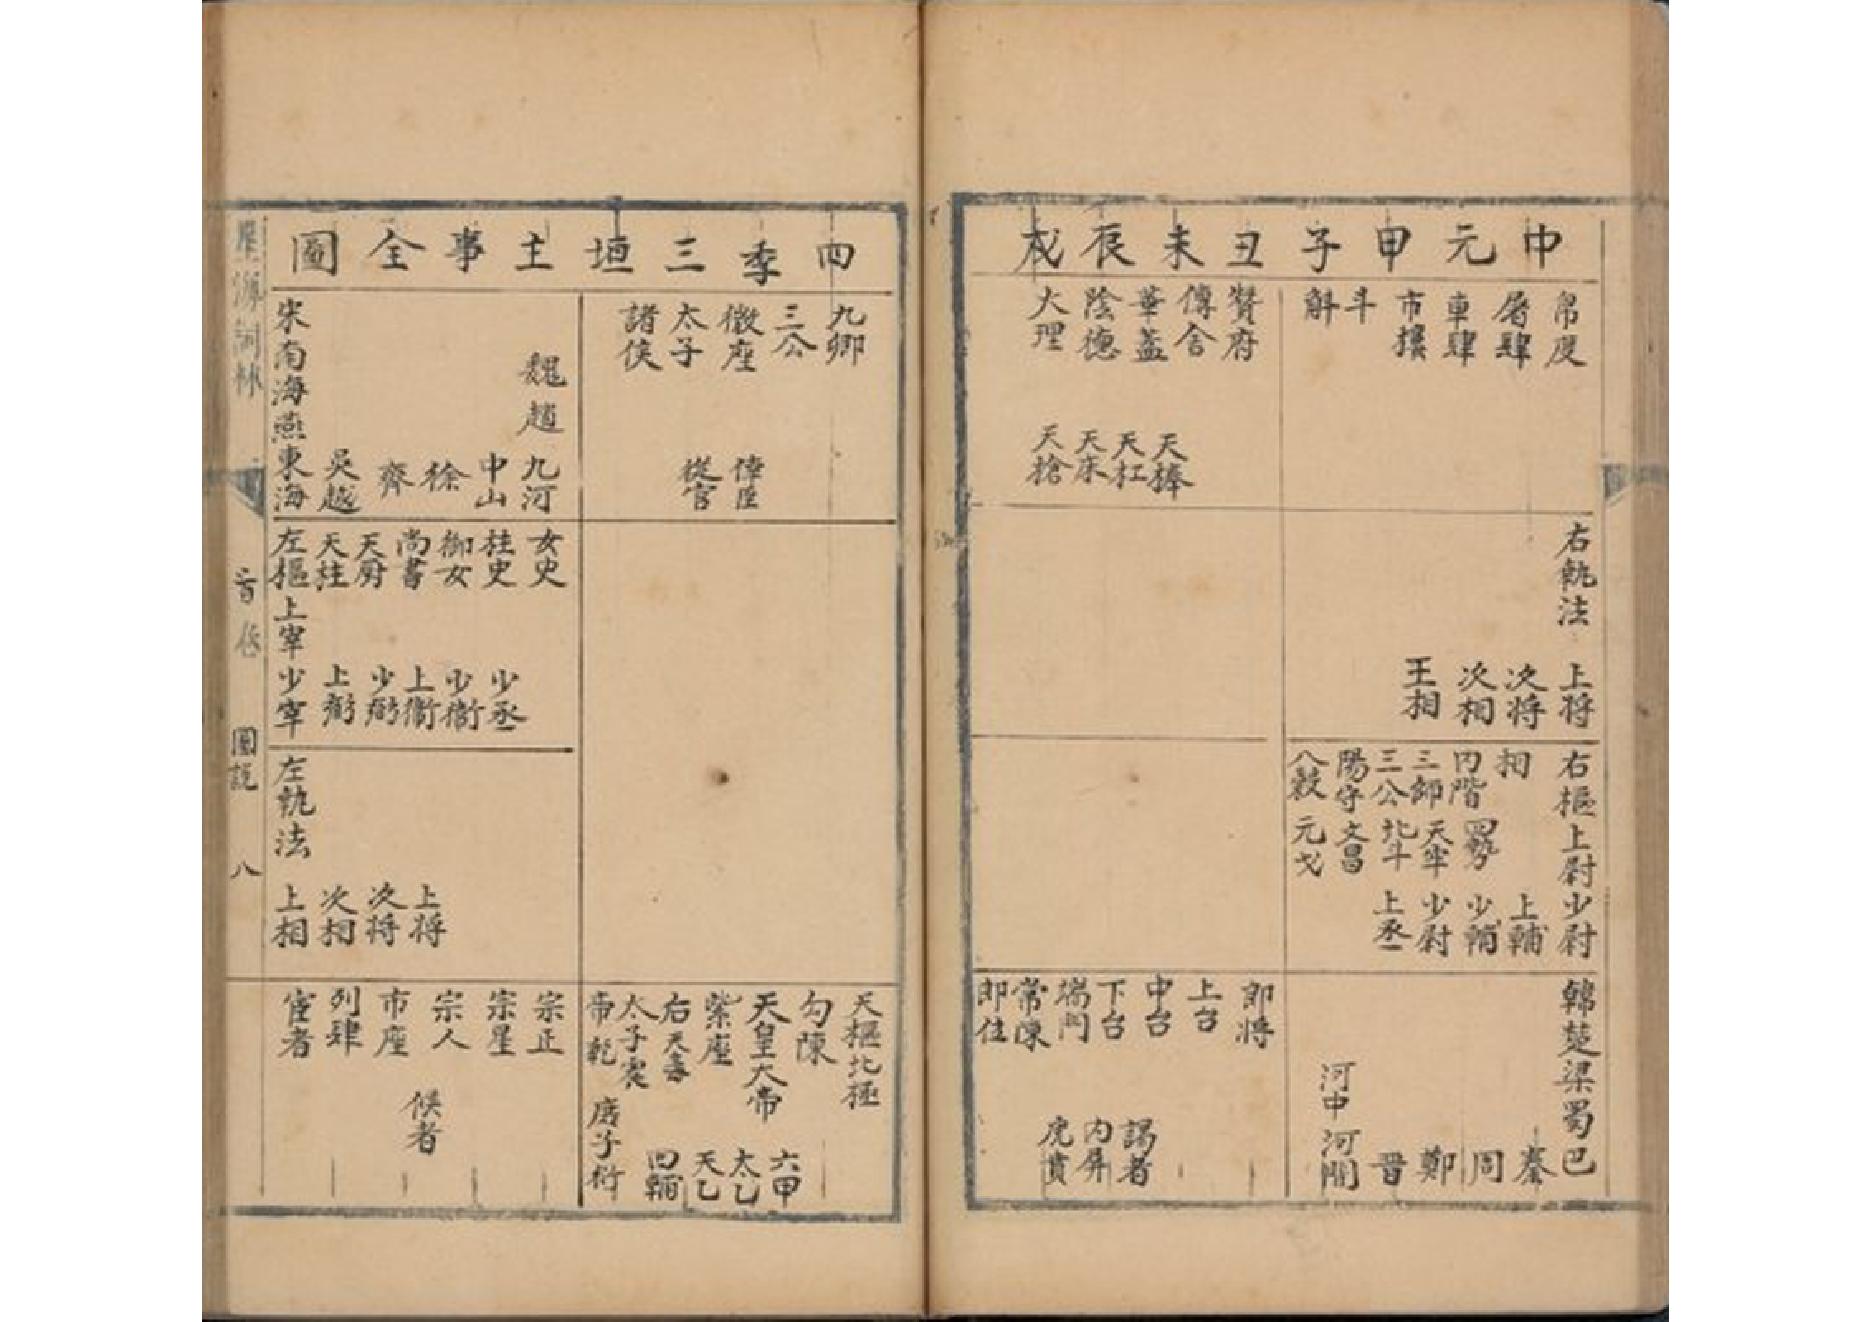 中元甲子丑未辰戌
帛度
屠肆
車肆
市樓
斗
斛
贊府
傳舍
華蓋
陰德
大理
天棒
天杠
天床
天槍
右執法
上将
次将
次相
王相
右樞上尉少尉
相
上輔
内階
四勢
少輔
三師
天牢
少尉
三公
北斗
上丞
陽守
文昌
八穀
元戈
韓楚梁蜀巴
秦
周
鄭
晋
河中河間
郎将
上台
中台
下台
端門
常陳
郎位
謁者
内屏
虎賁
四季三垣主事全圖
九卿
三公
微座
太子
諸侯
倖臣
從官
魏趙九河
中山
徐
齊
吳越
宋南海燕東海
女史
柱史
御女
尚書
天厨
天柱
左樞上宰少宰
少丞
上衛
少弼
上弼
左執法
上将
次将
次相
上相
天樞北極
勾陳
天皇大帝
紫座
太子
帝
庶子
六甲
太乙
天乙
四輔
宗正
宗星
宗人
市座
列肆
宦者
候者
首卷
圖說
八